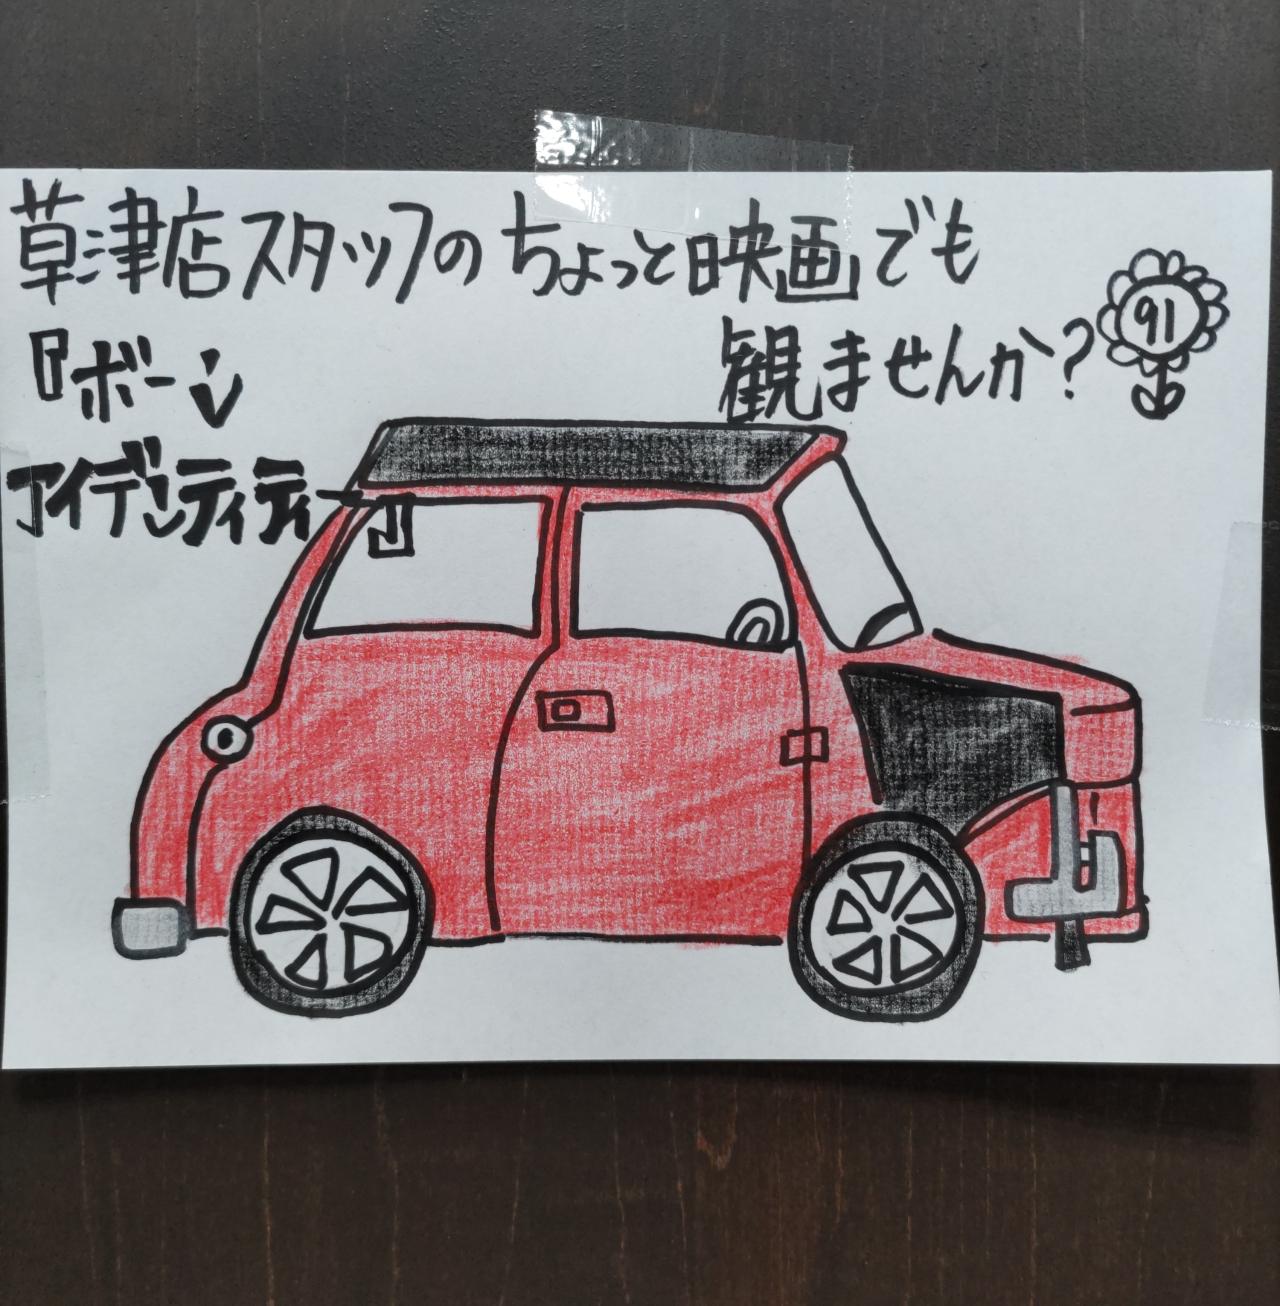 草津店スタッフのちょっと映画でも
観ませんか?
91
『ボーン
アイデンティティー』